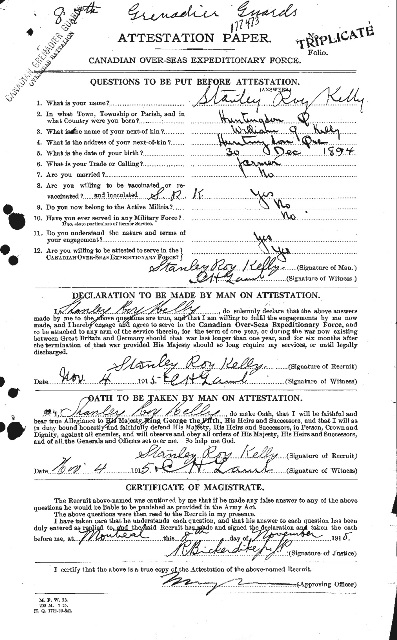 Grenadier Guards
177473
ATTESTATION PAPER.
TRIPLICATE
Folio.
CANADIAN OVER-SEAS EXPEDITIONARY FORCE.
QUESTIONS TO BE PUT BEFORE ATTESTATION.
(ANSWERS)
1. What is your name? Stanley Roy Kelly
2. In what Town, Township or Parish, and in what Country were you born? Huntingdon
3. What is the name of your next-of-kin? William Kelly
4. What is the address of your next-of-kin? Huntingdon Que
5. What is the date of your birth? 30 Dec 1894
6. What is your Trade or Calling? farmer
7. Are you married? No
8. Are you willing to be vaccinated or re-
vaccinated? and inoculated S R K Yes
9. Do you now belong to the Active Militia? No
10. Have you ever served in any Military Force? No
If so, state particulars of former Service.
11. Do you understand the nature and terms of
your engagement? Yes
12. Are you willing to be attested to serve in the
CANADIAN OVER-SEAS EXPEDITIONARY FORCE? Yes
Stanley Roy Kelly (Signature of Man.)
(Signature of Witness)
DECLARATION TO BE MADE BY MAN ON ATTESTATION.
I, Stanley Roy Kelly, do solemnly declare that the above answers
made by me to the above questions are true, and that I am willing to fulfil the engagements by me now
made, and I hereby engage and agree to serve in the Canadian Over-Seas Expeditionary Force, and
to be attached to any arm of the service therein, for the term of one year, or during the war now existing
between Great Britain and Germany should that war last longer than one year, and for six months after
the termination of that war provided His Majesty should so long require my services, or until legally
discharged.
Stanley Roy Kelly (Signature of Recruit)
Date Nov 4 1915 (Signature of Witness)
OATH TO BE TAKEN BY MAN ON ATTESTATION.
I, Stanley Roy Kelly, do make Oath, that I will be faithful and
bear true Allegiance to His Majesty King George the Fifth, His Heirs and Successors, and that I will as
in duty bound honestly and faithfully defend His Majesty, His Heirs and Successors, in Person, Crown and
Dignity, against all enemies, and will observe and obey all orders of His Majesty, His Heirs and Successors,
and of all the Generals and Officers set over me. So help me God.
Stanley Roy Kelly (Signature of Recruit)
Date Nov 4 1915 (Signature of Witness)
CERTIFICATE OF MAGISTRATE.
The Recruit above-named was cautioned by me that if he made any false answer to any of the above
questions he would be liable to be punished as provided in the Army Act.
The above questions were then read to the Recruit in my presence.
I have taken care that he understands each question, and that his answer to each question has been
duly entered as replied to, and the said Recruit has made and signed the declaration and taken the oath
before me, at Montreal this day of November 1915
(Signature of Justice)
I certify that the above is a true copy of the Attestation of the above-named Recruit.
(Approving Officer)
M. F. W. 23.